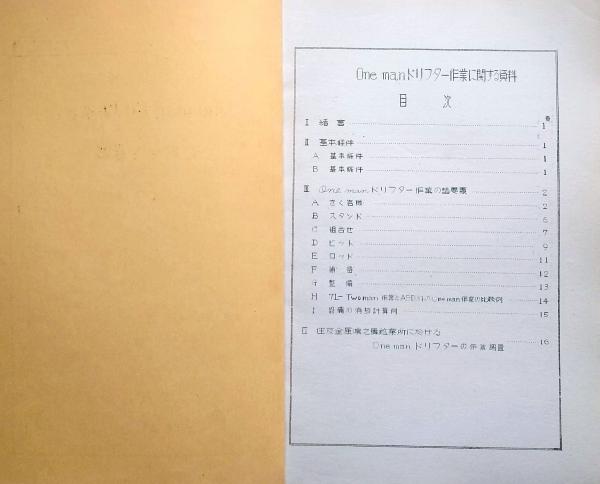 One manドリフター作業に関する資料
目 次
Ⅰ 緒言 1
Ⅱ 基本条件 1
A 基本条件 1
B 基本条件 1
Ⅲ One man ドリフター作業の諸要素 2
A さく岩機 2
B スタンド 6
C 組合せ 7
D ビット 9
E ロッド 11
F 12
G 整備 13
H Two man 作業と One man 作業の比較例 14
I 設備の償却計算例 15
住友金属鴻之舞鉱業所に於ける 16
One man ドリフターの作業